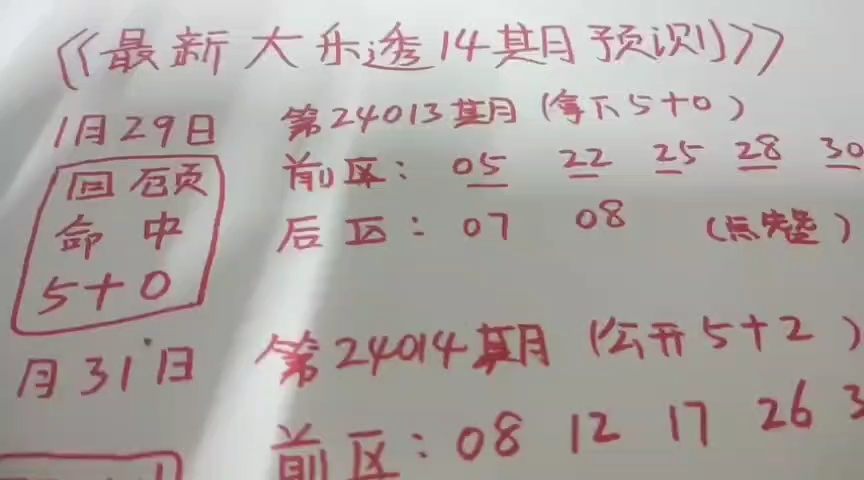 《最新大乐透14期预测》
1月29日
第24013期(拿下5+0)
前区: 05 22 25 28 30
后区: 07 08 (点完整)
回顾
命中
5+0
月31日
第24014期(公开5+2)
前区: 08 12 17 26 3